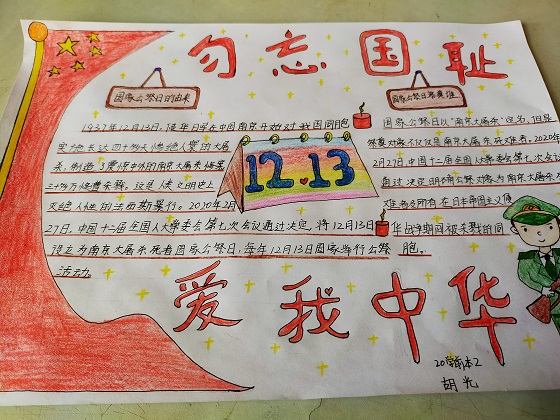 勿忘国耻
国家公祭日的由来
1937年12月13日，侵华日军在中国南京开始对我国同胞
实施长达四十多天惨绝人寰的大屠
杀，制造了震惊中外的南京大屠杀惨案
三十多万人惨遭杀戮，这是人类文明史上
灭绝人性的法西斯暴行。2020年2月
27日，中国十二届全国人大常委会第七次会议通过决定，将12月13日
设立为南京大屠杀死者国家公祭日，每年12月13日国家举行公祭
活动。
12.13
国家公祭日祭奠谁
国家公祭日以"南京大屠杀"定名，但是
祭奠对象不仅仅是南京大屠杀死难者。2020年
2月27日，中国十二届全国人大常委会第七次会议
通过决定明确公祭对象为南京大屠杀
难者和所有在日本帝国主义侵
华战争期间被杀戮的同
胞。
爱我中华
20学前本2
胡光